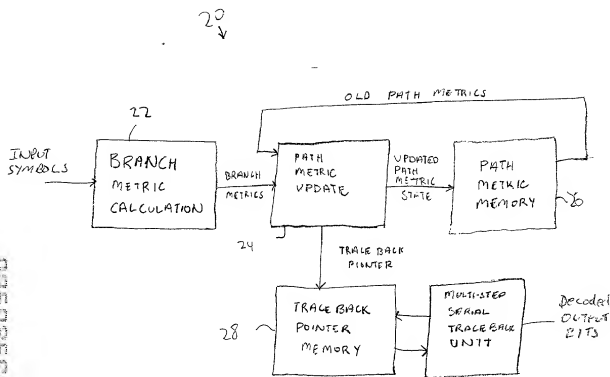 20
OLD PATH METRICS
22
INPUT
SYMBOLS
BRANCH
METRIC
CALCULATION
BRANCH
METRICS
PATH
METRIC
UPDATE
UPDATED
PATH
METRIC
STATE
PATH
METRIC
MEMORY
24
TRACE BACK
POINTER
28
TRACE BACK
POINTER
MEMORY
MULTI-STEP
SERIAL
TRACE BACK
UNIT
Decoded
OUTPUT
BITS